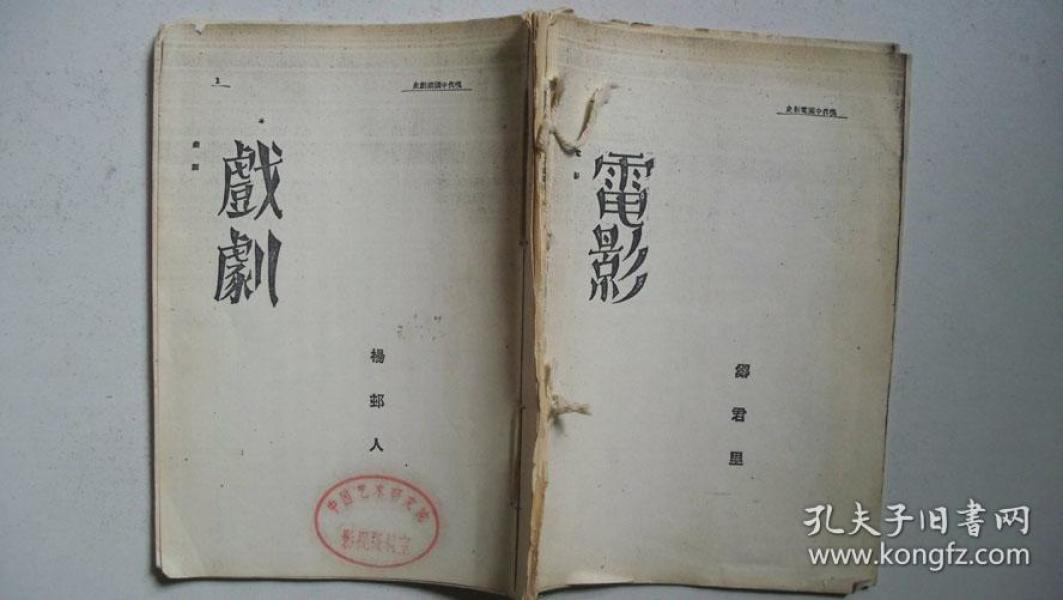 1
現代中國戲劇史
戲劇
戲劇
楊邨人
中国艺术研究院
影视资料室
現代中國電影史
電影
鄭君里
孔夫子旧书网
www.kongfz.com